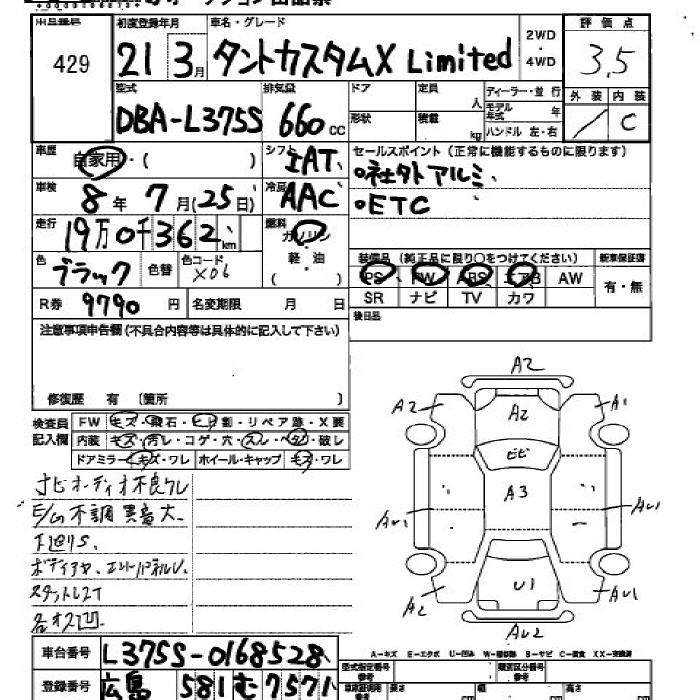 429
初度登録年月
21 3月
車名・グレード
タントカスタムX Limited
2WD
・
4WD
評価点
3.5
外装 内装
/ C
型式
DBA-L375S
排気量
660cc
ドア
形状
定員 人
積載 kg
ディーラー・並行
モデル年式 年
ハンドル 左・右
車歴
自家用・( )
シフト
IAT
セールスポイント(正常に機能するものに限ります)
○社外アルミ
○ETC
車検
8年 7月(25日)
冷房
AAC
走行
19万0千362km
燃料
ガソリン
軽・油
( )
色
ブラック
色替
色コード
X06
装備品(純正品に限り○をつけてください)
新車保証書
PS PW ABS エアB AW
SR ナビ TV カワ
有・無
R券 9790円
名変期限 月 日
後日品
注意事項申告欄(不具合内容等は具体的に記入して下さい)
修復歴 有 〔箇所 〕
検査員記入欄
FW キズ・飛石・ヒビ割・リペア跡・X要
内装 キズ・汚レ・コゲ・穴・スレ・ベタ・破レ
ドアミラー キズ・ワレ ホイール・キャップ キズ・ワレ
ナビオーディオ不良クレ
E/G不調 異音大
下廻りS.
各オス凹
A2
A2 A2 A1
ヒビ
A3
AU1 AU1
U1
A2 AU1
AU2
車台番号 L375S-0168528
登録番号 広島 581 む 7571
A-キズ E-エクボ U-凹み W-補修跡 S-サビ C-腐食 XX-交換済
型式指定番号
参考
類別区分番号
参考
長さ cm 幅 cm 高さ cm